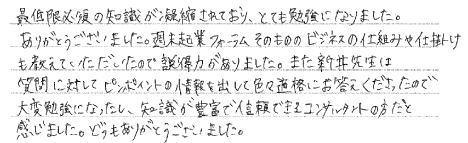 最低限必須の知識が凝縮されており、とても勉強になりました。
ありがとうございました。週末起業フォーラムそのもののビジネスの仕組みや仕掛け
も教えていただいたので説得力がありました。また新井先生は
質問に対してピンポイントの情報を出して色々適格にお答えくださったので
大変勉強になったし、知識が豊富で信頼できるコンサルタントの方だと
感じました。どうもありがとうございました。